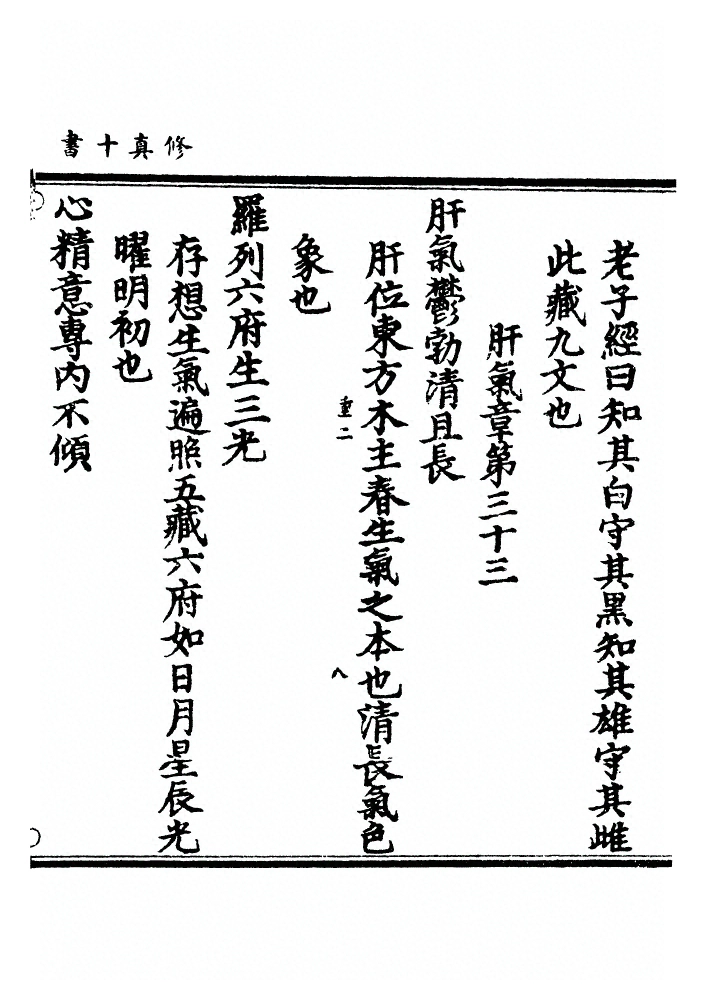 修真十書
老子經曰知其白守其黑知其雄守其雌
此藏九文也
肝氣章第三十三
肝氣鬱勃清且長
肝位東方木主春生氣之本也清長氣色
重二
八
象也
羅列六府生三光
存想生氣遍照五藏六府如日月星辰光
曜明初也
心精意專內不傾